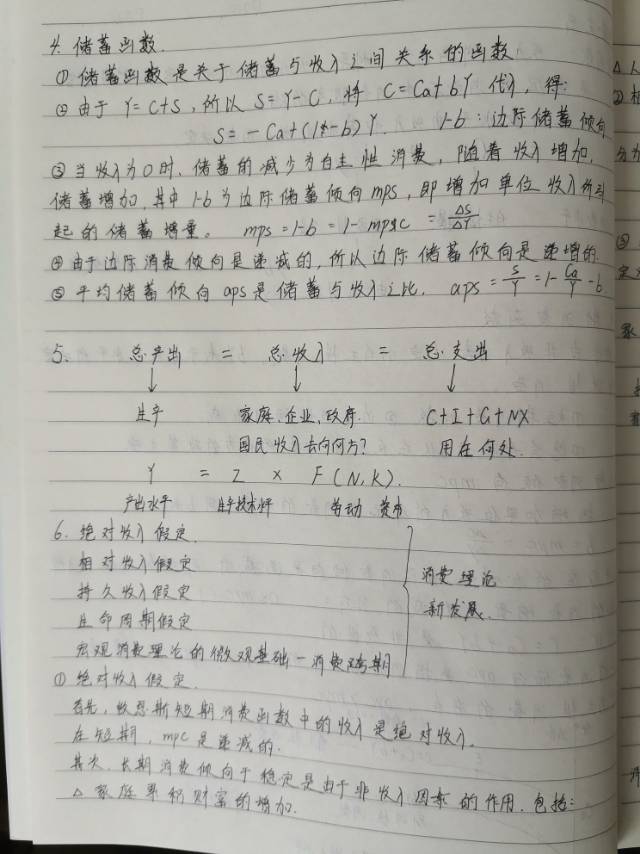 4. 储蓄函数.
① 储蓄函数是关于储蓄与收入之间关系的函数
② 由于 Y=C+S, 所以 S=Y-C, 将 C=Ca+bY 代入, 得:
S=-Ca+(1-b)Y. 1-b:边际储蓄倾向
③ 当收入为0时, 储蓄的减少为自主性消费, 随着收入增加,
储蓄增加. 其中 1-b 为边际储蓄倾向 mps, 即增加单位收入所引
起的储蓄增量。 mps=1-b=1-mpc=ΔS/ΔY
④ 由于边际消费倾向是递减的, 所以边际储蓄倾向是递增的.
⑤ 平均储蓄倾向 aps 是储蓄与收入之比. aps=S/Y=1-Ca/Y-b
5. 总产出 = 总收入 = 总支出
↓ ↓ ↓
生产 家庭、企业、政府. C+I+G+NX
国民收入去向何方? 用在何处.
Y = Z × F(N,K).
产出水平 生产技术水平 劳动 资本
6. 绝对收入假定.
相对收入假定
持久收入假定
生命周期假定
宏观消费理论的微观基础-消费跨期
消费理论
新发展.
① 绝对收入假定.
首先, 凯恩斯短期消费函数中的收入是绝对收入.
在短期, mpc是递减的.
其次. 长期消费倾向于稳定是由于非收入因素的作用. 包括:
△ 家庭累积财富的增加.